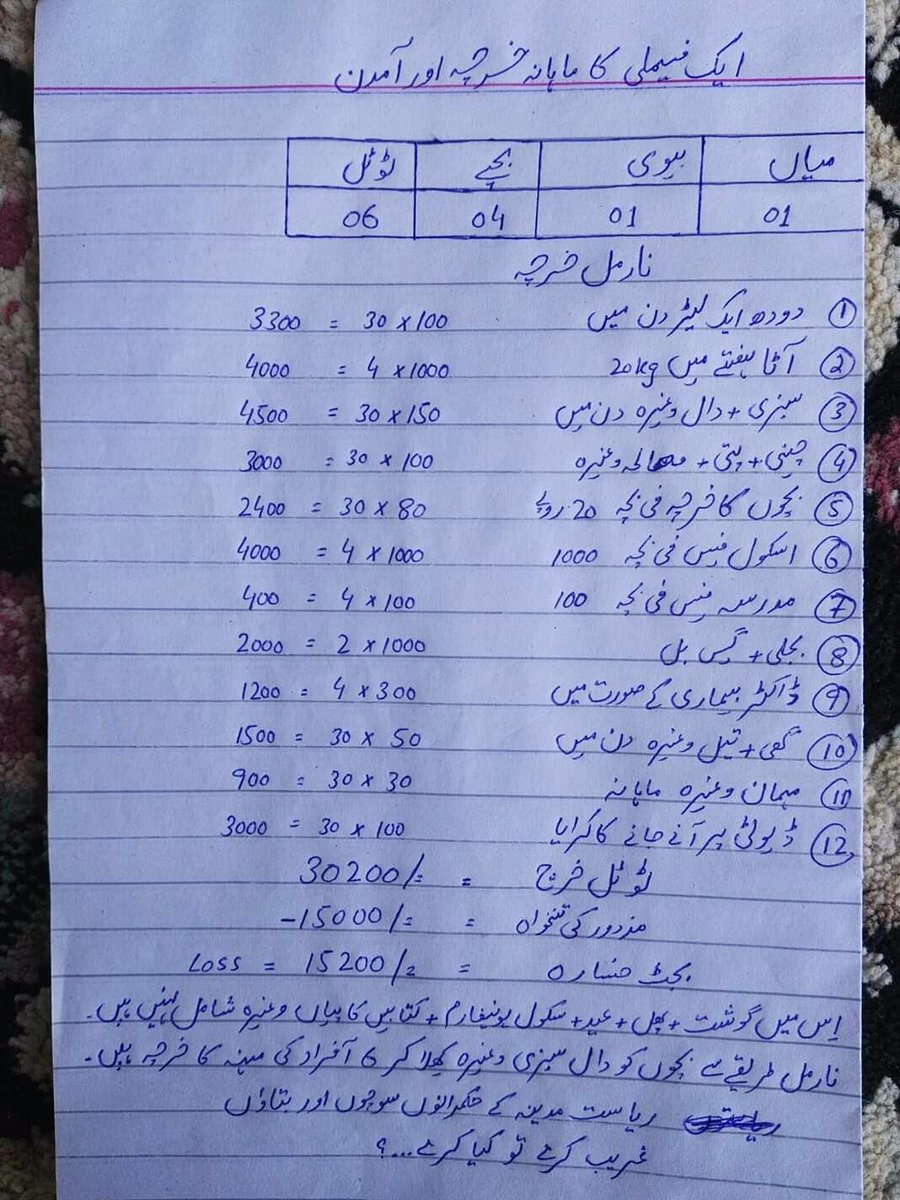 ایک فیملی کا ماہانہ خرچہ اور آمدن
میاں بیوی بچے ٹوٹل
01 01 04 06
نارمل خرچہ
① دودھ ایک لیٹر دن میں 30 x 100 = 3300
② آٹا ہفتے میں 20kg 4 x 1000 = 4000
③ سبزی + دال وغیرہ دن میں 30 x 150 = 4500
④ چینی + پتی + مصالحہ وغیرہ 30 x 100 = 3000
⑤ بچوں کا خرچہ فی بچہ 20 روپے 30 x 80 = 2400
⑥ اسکول فیس فی بچہ 1000 4 x 1000 = 4000
⑦ مدرسہ فیس فی بچہ 100 4 x 100 = 400
⑧ بجلی + گیس بل 2 x 1000 = 2000
⑨ ڈاکٹر بیماری کے صورت میں 4 x 300 = 1200
⑩ گھی + تیل وغیرہ دن میں 30 x 50 = 1500
⑪ مہمان وغیرہ ماہانہ 30 x 30 = 900
⑫ ڈیوٹی پر آنے جانے کا کرایا 30 x 100 = 3000
ٹوٹل خرچ = 30200/=
مزدور کی تنخواہ = 15000/=-
بجٹ خسارہ = 15200/= = Loss
اِس میں گوشت + پھل + عید + سکول یونیفارم + کتابیں کاپیاں وغیرہ شامل نہیں ہیں۔
نارمل طریقے سے بچوں کو دال سبزی وغیرہ کھلا کر 6 آفراد کی مہینہ کا خرچہ ہیں۔
ریاست مدینہ کے حکمرانوں سوچوں اور بتاؤں
غریب کرے تو کیا کرے...؟